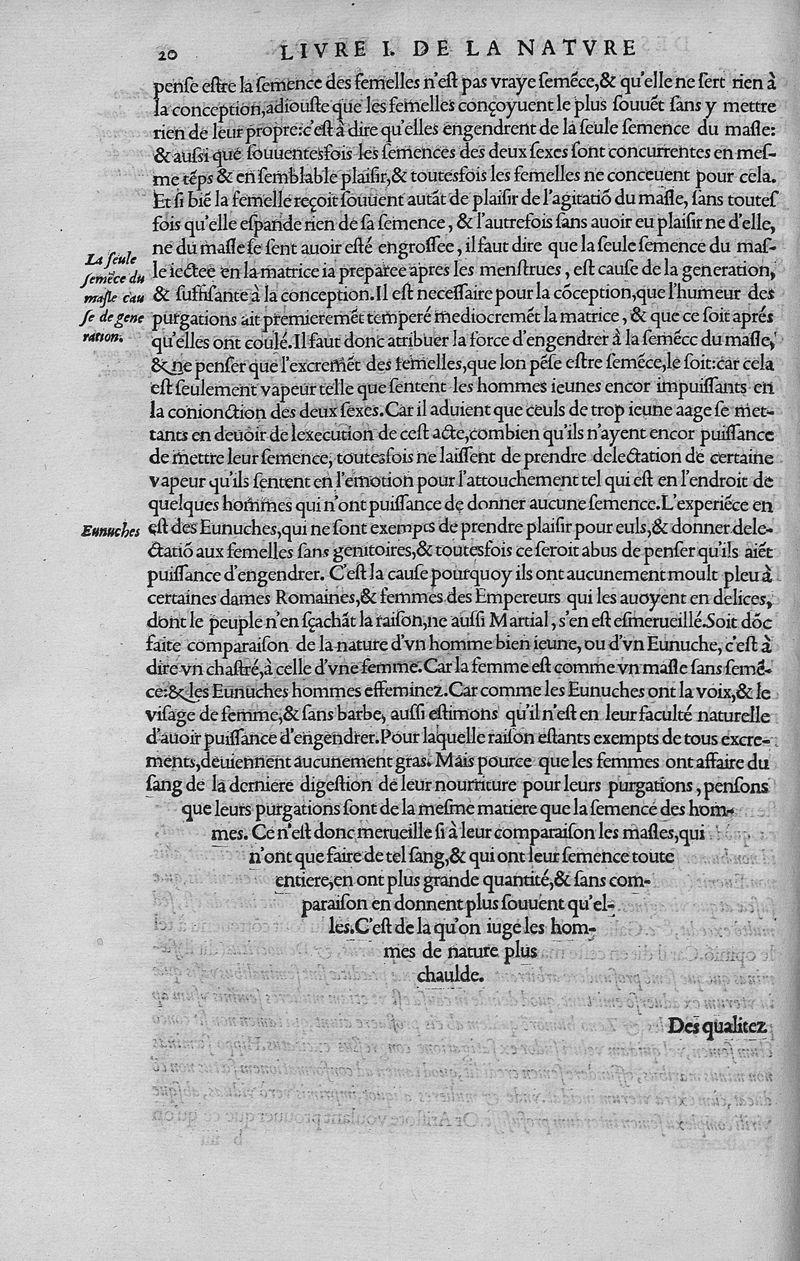 20 LIVRE I. DE LA NATVRE
penſe eſtre la ſemence des femelles n'eſt pas vraye ſemẽce,& qu'elle ne ſert rien à
la conception,adiouſte que les femelles conçoyuent le plus ſouuẽt ſans y mettre
rien de leur propre:c'eſt à dire qu'elles engendrent de la ſeule ſemence du maſle:
& auſsi que ſouuentesfois les ſemences des deux ſexes ſont concurrentes en meſ-
me tẽps & en ſemblable plaiſir,& toutesfois les femelles ne conceuent pour cela.
Et ſi biẽ la femelle reçoit ſouuent autãt de plaiſir de l'agitatiõ du maſle, ſans touteſ
fois qu'elle eſpande rien de ſa ſemence, & l'autrefois ſans auoir eu plaiſir ne d'elle,
ne du maſle ſe ſent auoir eſté engroſſee, il faut dire que la ſeule ſemence du maſ-
La ſeule
ſemẽce du
maſle cau
ſe de gene
ration.
le iectee en la matrice ia preparee apres les menſtrues, eſt cauſe de la generation,
& ſuffiſante à la conception.Il eſt neceſſaire pour la cõception,que l'humeur des
purgations ait premieremẽt temperé mediocremẽt la matrice, & que ce ſoit aprés
qu'elles ont coulé.Il faut donc atribuer la force d'engendrer à la ſemẽce du maſle,
& ne penſer que l'excremẽt des femelles,que lon pẽſe eſtre ſemẽce,le ſoit:car cela
eſt ſeulement vapeur telle que ſentent les hommes ieunes encor impuiſſants en
la conionction des deux ſexes.Car il aduient que ceuls de trop ieune aage ſe met-
tants en deuoir de lexecution de ceſt acte,combien qu'ils n'ayent encor puiſſance
de mettre leur ſemence, toutesfois ne laiſſent de prendre delectation de certaine
vapeur qu'ils ſentent en l'emotion pour l'attouchement tel qui eſt en l'endroit de
quelques hommes qui n'ont puiſſance de donner aucune ſemence.L'experiẽce en
Eunuches
eſt des Eunuches,qui ne ſont exempts de prendre plaiſir pour euls,& donner dele-
ctatiõ aux femelles ſans genitoires,& toutesfois ce ſeroit abus de penſer qu'ils aiẽt
puiſſance d'engendrer. C'eſt la cauſe pourquoy ils ont aucunement moult pleu à
certaines dames Romaines,& femmes des Empereurs qui les auoyent en delices,
dont le peuple n'en ſçachãt la raiſon,ne auſsi Martial, s'en eſt eſmerueillé.Soit dõc
faite comparaiſon de la nature d'vn homme bien ieune, ou d'vn Eunuche, c'eſt à
dire vn chaſtré,à celle d'vne femme.Car la femme eſt comme vn maſle ſans ſemẽ-
ce:& les Eunuches hommes effeminez.Car comme les Eunuches ont la voix,& le
viſage de femme,& ſans barbe, auſsi eſtimons qu'il n'eſt en leur faculté naturelle
d'auoir puiſſance d'engendrer.Pour laquelle raiſon eſtants exempts de tous excre-
ments,deuiennent aucunement gras. Mais pource que les femmes ont affaire du
ſang de la derniere digeſtion de leur nourriture pour leurs purgations, penſons
que leurs purgations ſont de la meſme matiere que la ſemence des hom-
mes. Ce n'eſt donc merueille ſi à leur comparaiſon les maſles,qui
n'ont que faire de tel ſang,& qui ont leur ſemence toute
entiere,en ont plus grande quantité,& ſans com-
paraiſon en donnent plus ſouuent qu'el-
les.C'eſt de la qu'on iuge les hom-
mes de nature plus
chaulde.
Des qualitez